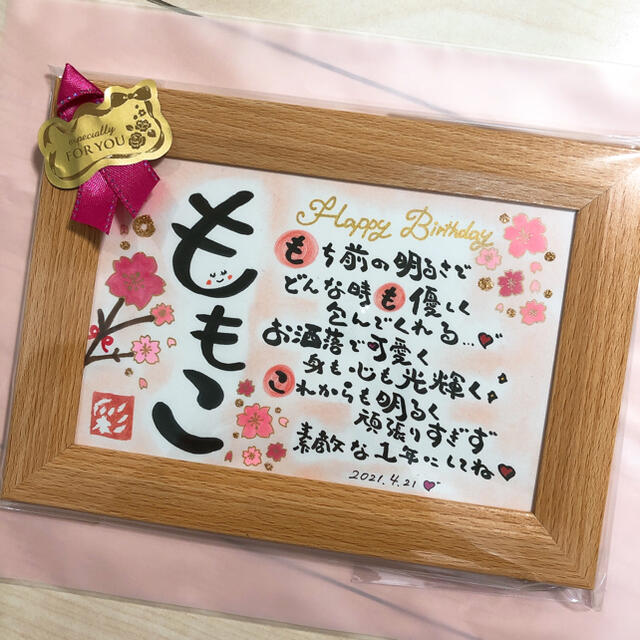 especially
FOR YOU
ももこ
Happy Birthday
もち前の明るさで
どんな時も優しく
包んでくれる…
お洒落で可愛く
身も心も光輝く
これからも明るく
頑張りすぎず
素敵な1年にしてね
2021.4.21